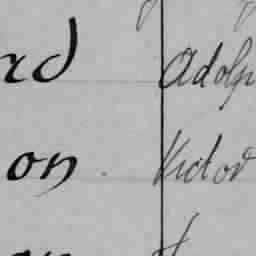 rd Adolp
on Victor